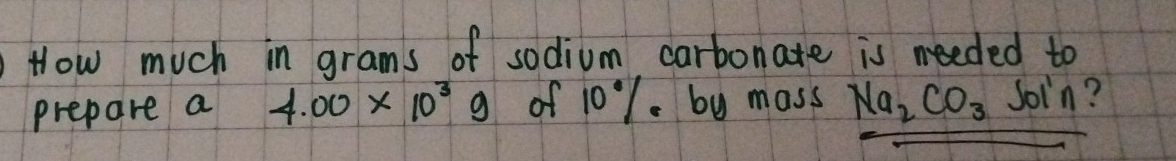 ) How much in grams of sodium carbonate is needed to
prepare a 4.00 × 10³ g of 10%. by mass Na₂CO₃ Sol'n?